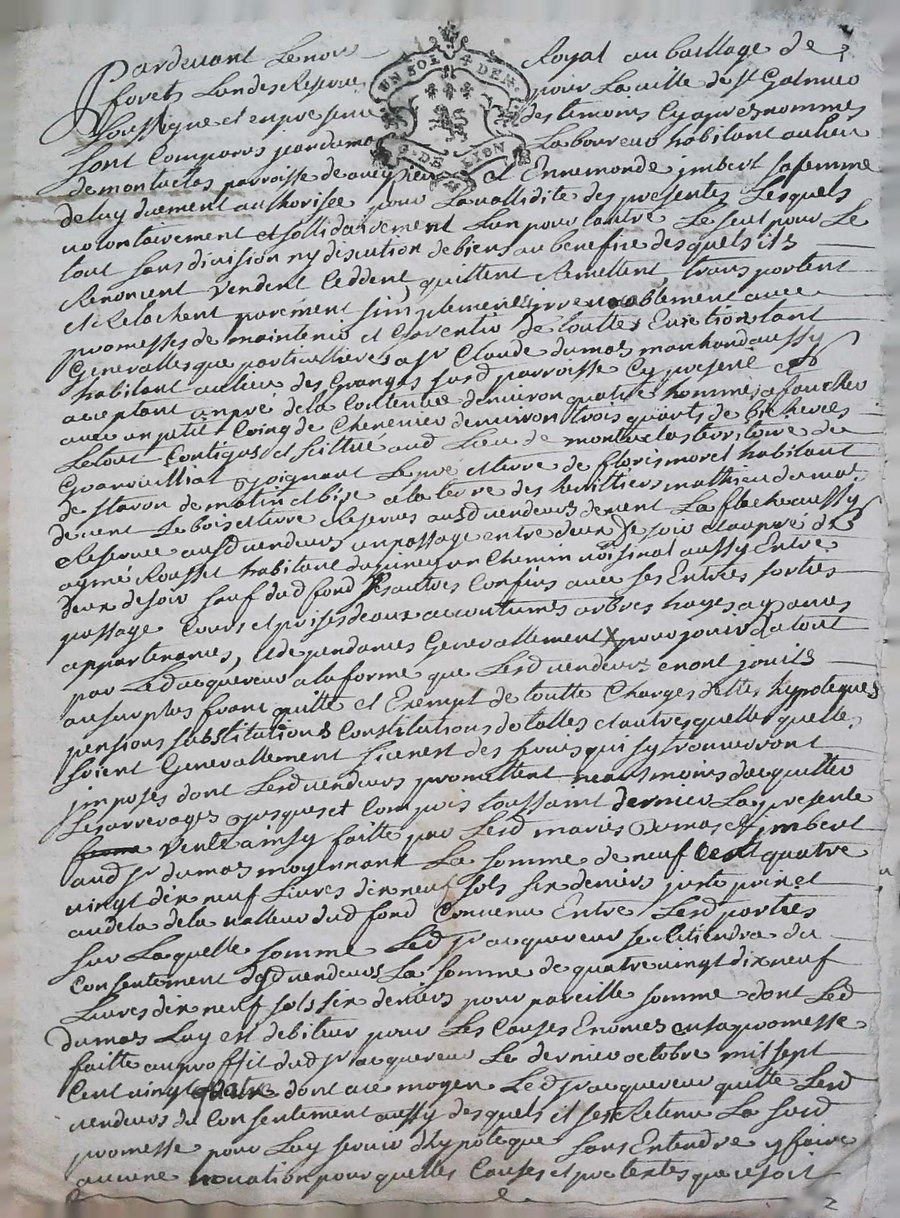 Pardevant Le nore Royal au bailliage de
forets Lun des Reserves pour La ville de st Galmier
soussigné et en presence des temoins Cy apres nommes
sont Comparus jean dumas Laboureur habitant au lieu
de montuclas parroisse de aveysieu et Ennemonde jmbert sa femme
de luy duement authorisée pour La vallidite des presentes Lesquels
volontairement et sollidairement Lun pour Lautre Le seul pour Le
tout sans division ny discution de biens au benefice des quels ils
Renoncent vendent Ceddent quittent Remettent transportent
et Relachent purement simplement irrevocablement avec
promesses de maintenir et Garentir de touttes Eviction tant
Generalles que particullieres a sr Claude dumas marchand aussy
habitant au lieu des Granges susd parroisse Cy present et
acceptant un pré de la Contenue denviron quatre hommes a faucher
avec un petit Coing de Chenevier denviron trois quarts de bicherees
Le tout Contigus et scittué aud Lieu de montuclas territoire de
joignant Le pré et terre de floris morel habitant
de matin et bise a la terre des herittiers mathieu dumas
de vent Le bois et terre Reserves ausd vendeurs de vent La fleche aussy
Reservée ausd vendeurs un passage entre deux de soir et au pré de
aymé Rousset habitant un Chemin voisinal aussy Entre
deux de soir sauf dud fond ses autres Confins avec ses Entrées sorties
passage Cours et prises deaux accoutumes arbres hayes
appartenances, et dependances Generallement X pour jouir du tout
par Led acquereur a la forme que Lesd vendeurs en ont jouit
au surplus franc quitte et Exempt de toutte Charges dettes hypoteques
pensions substitutions Constitutions de talles et autres quelle quelle
soient Generallement si cenest des servis qui sy trouverront
jmposes dont Lesd vendeurs promettent neansmoins dacquitter
Les arrerages jusques et Compris toussaint dernier La presente
vente ainsy faitte par Lesd maries dumas et jmbert
aud sr dumas moyennant La somme de neuf Cent quatre
vingt dix neuf Livres dix neuf sols six deniers juste prix et
audela de la valleur dud fond Convenu Entre Lesd parties
sur Laquelle somme Led sr acquereur se Retiendra du
Consentement desd vendeurs La somme de quatre vingt dix neuf
Livres dix neuf sols six deniers pour pareille somme dont Led
dumas Luy est debiteur pour Les Causes Enoncées en sa promesse
faitte au proffit dud sr acquereur Le dernier octobre mil sept
Cent vingt quatre dont au moyen Led sr acquereur quitte Lesd
vendeurs du Consentement aussy desquels il sest Retenu La susd
promesse pour Luy servir dhypoteque sans Entendre y faire
aucune novation pour quelles Causes et pretextes que ce soit
UN SOL 4 DEN.
G. DE LION
2